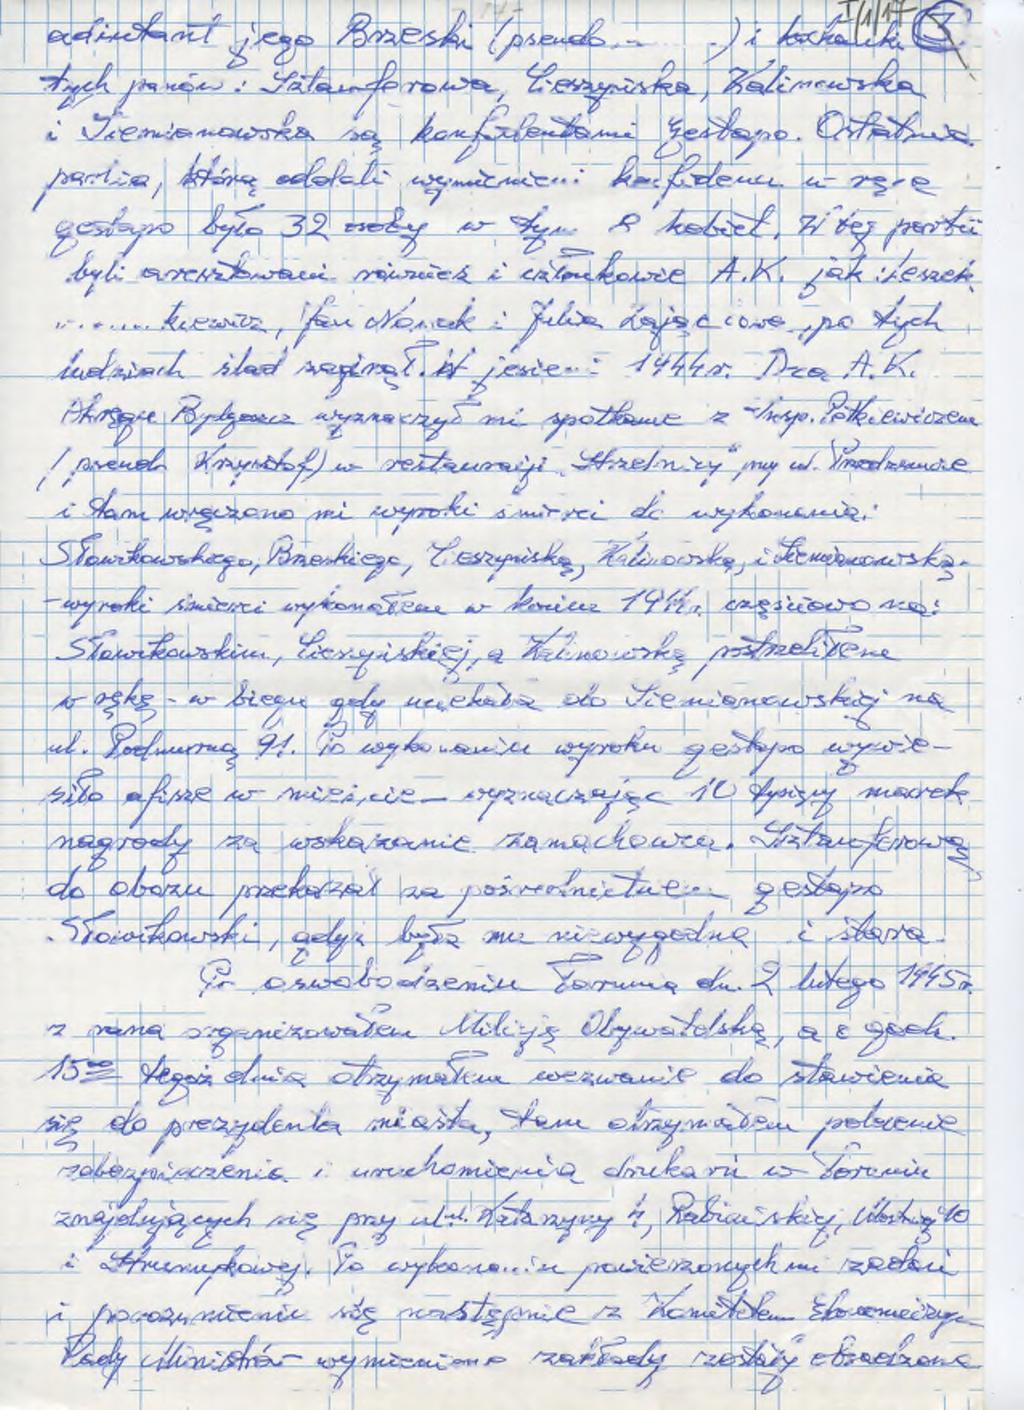 I/1/17 3
adiutant jego Brzeski (pseudo.... .) i kochanki
tych panów: Sztamferowa, Cieszyńska, Kalinowska
i Siemianowska są konfidentami gestapo. Ostatnia
partia, którą oddali wymienieni konfidenci w ręce
gestapo było 32 osoby w tym 8 kobiet, W tej partii
byli aresztowani również i członkowie A.K. jak: Leszek
.........kiewicz, Jan Nowak i Julia Zającowa, po tych
ludziach ślad zaginął. W jesieni 1944 r. Dca A.K.
Okręgu Bydgoszcz wyznaczył mi spotkanie z insp.
/pseudo Krzysztof) w restauracji „Strzelnicy", przy ul. Przedzamcze
i tam wręczono mi wyroki śmierci do wykonania:
Słowikowskiego, Brzeskiego, Cieszyńską, Kalinowską, i Siemianowską-
-wyroki śmierci wykonałem w końcu 1944 r. częściowo na:
Słowikowskim, Cieszyńskiej, a Kalinowską postrzeliłem
w rękę - w biegu gdy uciekała do Siemianowskiej na
ul. Podmurną 91. Po wykonaniu wyroku gestapo wywie-
siło afisze w mieście - wyznaczając 10 tysięcy marek
nagrody za wskazanie zamachowca. Sztamferową
do obozu przekazał za pośrednictwem gestapo
Słowikowski, gdyż była mu niewygodna i stara.
Po oswobodzeniu Torunia dn. 2 lutego 1945 r.
z rana organizowałem Milicję Obywatelską, a o godz.
15⁰⁰ tegoż dnia otrzymałem wezwanie do stawienia
się do prezydenta miasta, tam otrzymałem polecenie
zabezpieczenia i uruchomienia drukarń w Toruniu
znajdujących się przy ul. Katarzyny 4, Rabiańskiej, Mostowej 10
i Strumykowej. Po wykonaniu powierzonych mi zadań
i porozumieniu się następnie z Komitetem Ekonomicznym
Rady Ministrów wymienione zakłady zostały obsadzone